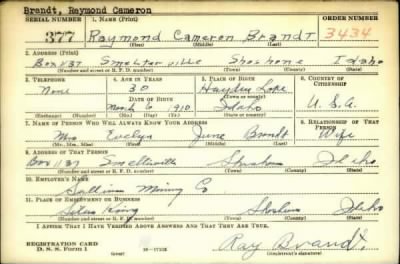 Brandt, Raymond Cameron
SERIAL NUMBER 1. NAME (Print) ORDER NUMBER
377 Raymond Cameron Brandt 3434
(First) (Middle) (Last)
2. ADDRESS (Print)
Box 1137 Smelterville Shoshone Idaho
(Number and street or R. F. D. number) (Town) (County) (State)
3. TELEPHONE 4. AGE IN YEARS 5. PLACE OF BIRTH 6. COUNTRY OF CITIZENSHIP
None 30 Hayden Lake
DATE OF BIRTH (Town or county)
March 6 1910 Idaho U.S.A.
(Exchange) (Number) (Mo.) (Day) (Yr.) (State or country)
7. NAME OF PERSON WHO WILL ALWAYS KNOW YOUR ADDRESS 8. RELATIONSHIP OF THAT PERSON
Mrs Evelyn June Brandt Wife
(Mr., Mrs., Miss) (First) (Middle) (Last)
9. ADDRESS OF THAT PERSON
Box 1137 Smelterville Shoshone Idaho
(Number and street or R. F. D. number) (Town) (County) (State)
10. EMPLOYER'S NAME
Sullivan Mining Co
11. PLACE OF EMPLOYMENT OR BUSINESS
Silver King Shoshone Idaho
(Number and street or R. F. D. number) (Town) (County) (State)
I AFFIRM THAT I HAVE VERIFIED ABOVE ANSWERS AND THAT THEY ARE TRUE.
REGISTRATION CARD
D. S. S. Form 1 (over) Ray Brandt
(Registrant's signature)